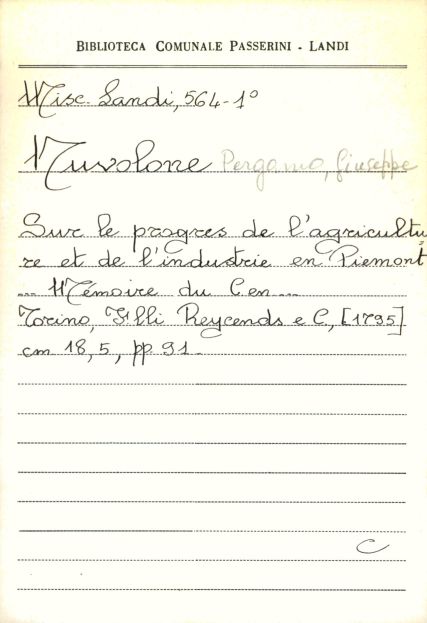 BIBLIOTECA COMUNALE PASSERINI - LANDI
Misc. Landi, 564-1º
Nuvolone Pergamo, Giuseppe
Sur le progres de l'agricultu
re et de l'industrie en Piemont
... Mémoire du Cen...
Torino, F.lli Reycends e C., [1795]
cm 18,5, pp 91.
C